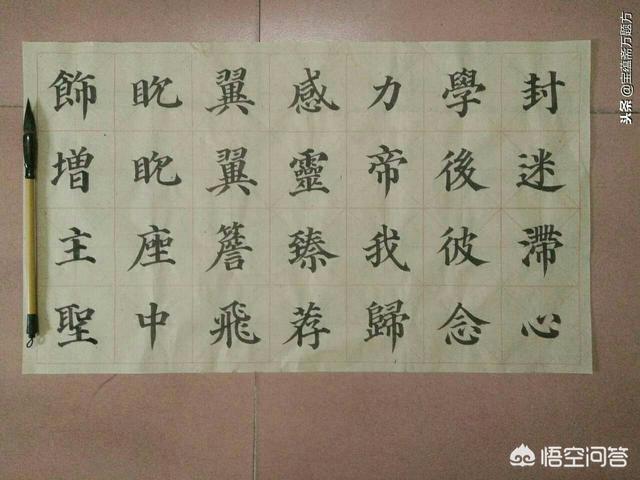 封迷滯心
學後彼念
力帝我歸
感靈臻荐
翼翼簷飛
眈眈座中
飾增主聖
头条 @宝蕴斋万题方
悟空问答